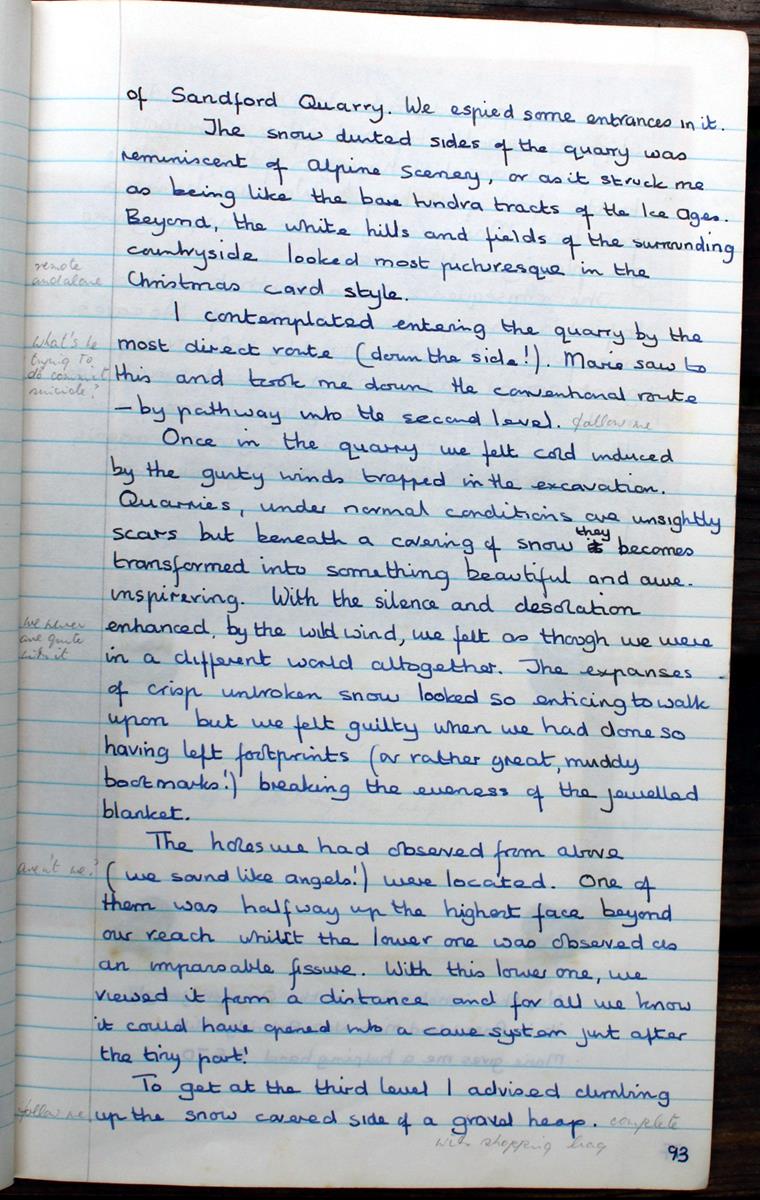 of Sandford Quarry. We espied some entrances in it.
The snow dusted sides of the quarry was
reminiscent of alpine scenery, or as it struck me
as being like the bare tundra tracts of the Ice Ages.
Beyond, the white hills and fields of the surrounding
countryside looked most picturesque in the
remote
and alone
Christmas card style.
I contemplated entering the quarry by the
what's he
trying to
do commit
suicide?
most direct route (down the side!). Marie saw to
this and took me down the conventional route
– by pathway into the second level. follow me
Once in the quarry we felt cold induced
by the gusty winds trapped in the excavation.
Quarries, under normal conditions are unsightly
scars but beneath a covering of snow they becomes
transformed into something beautiful and awe-
inspirering. With the silence and desolation
enhanced, by the wild wind, we felt as though we were
we never
are quite
with it
in a different world altogether. The expanses
of crisp unbroken snow looked so enticing to walk
upon but we felt guilty when we had done so
having left footprints (or rather great, muddy
bootmarks!) breaking the eveness of the jewelled
blanket.
The holes we had observed from above
aren't we?
(we sound like angels!) were located. One of
them was halfway up the highest face beyond
our reach whilst the lower one was observed as
an impassable fissure. With this lower one, we
viewed it from a distance and for all we know
it could have opened into a cave system just after
the tiny part!
To get at the third level I advised climbing
follow me
up the snow covered side of a gravel heap. complete
with shopping bag
93